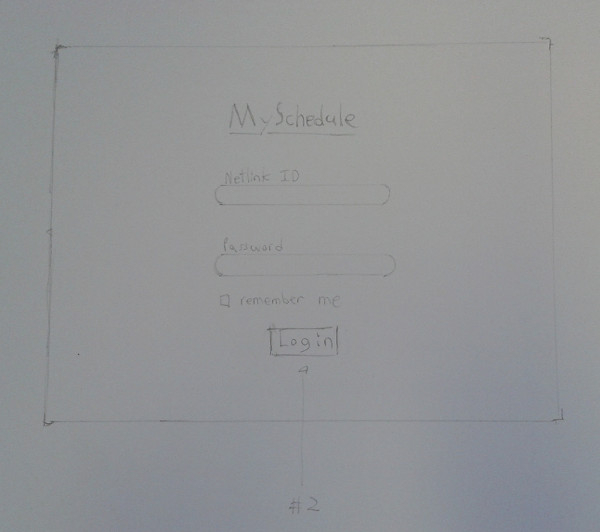 MySchedule
Netlink ID
Password
remember me
Login
#2